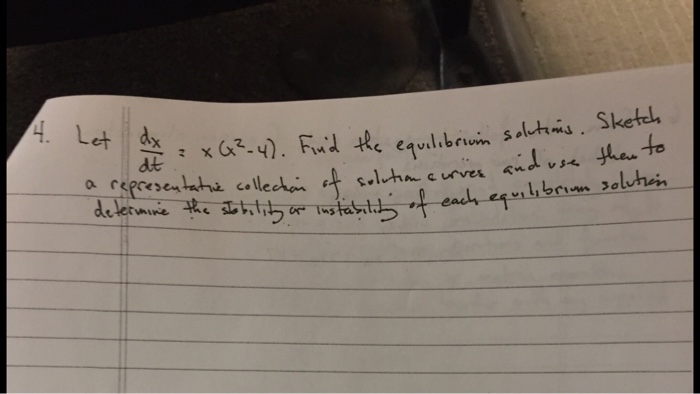 4. Let dx/dt = x(x²-4). Find the equilibrium solutions. Sketch
a representative collection of solution curves and use them to
determine the stability or instability of each equilibrium solution